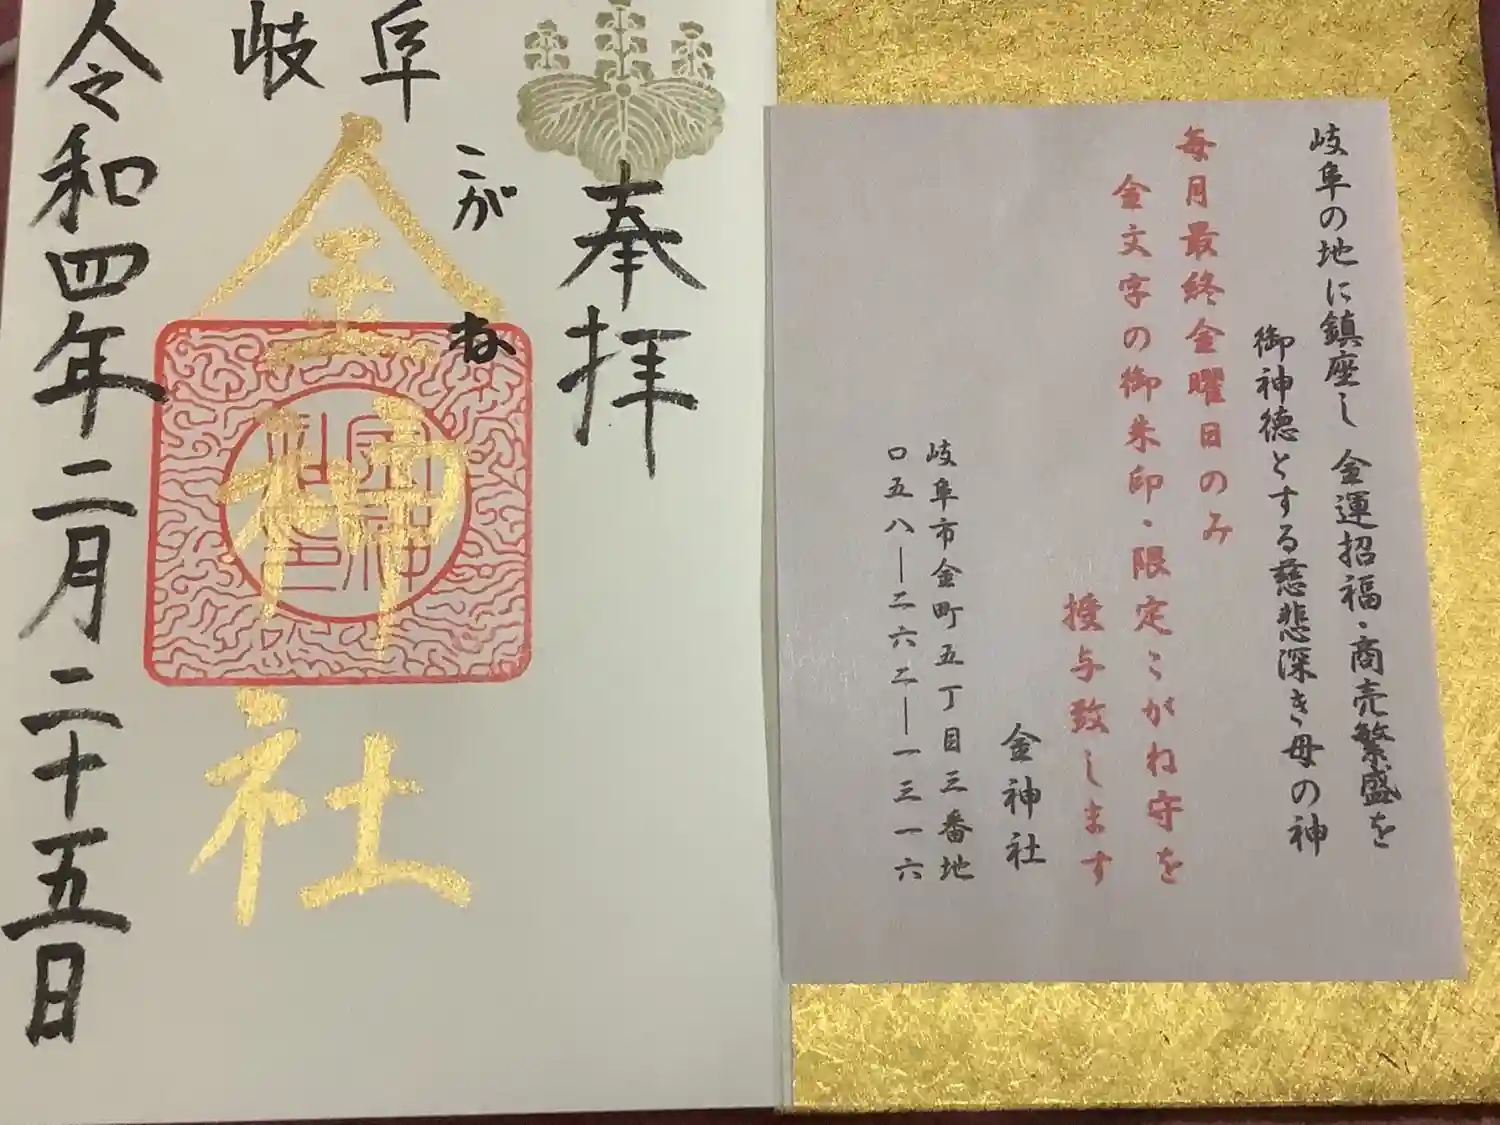 岐阜の地に鎮座し 金運招福・商売繁盛を
御神徳とする慈悲深き母の神
毎月最終金曜日のみ
金文字の御朱印・限定こがね守を
授与致します
金神社
岐阜市金町五丁目三番地
〇五八―二六二―一三一六
奉拝
岐阜
こがね
金神社
令和四年二月二十五日